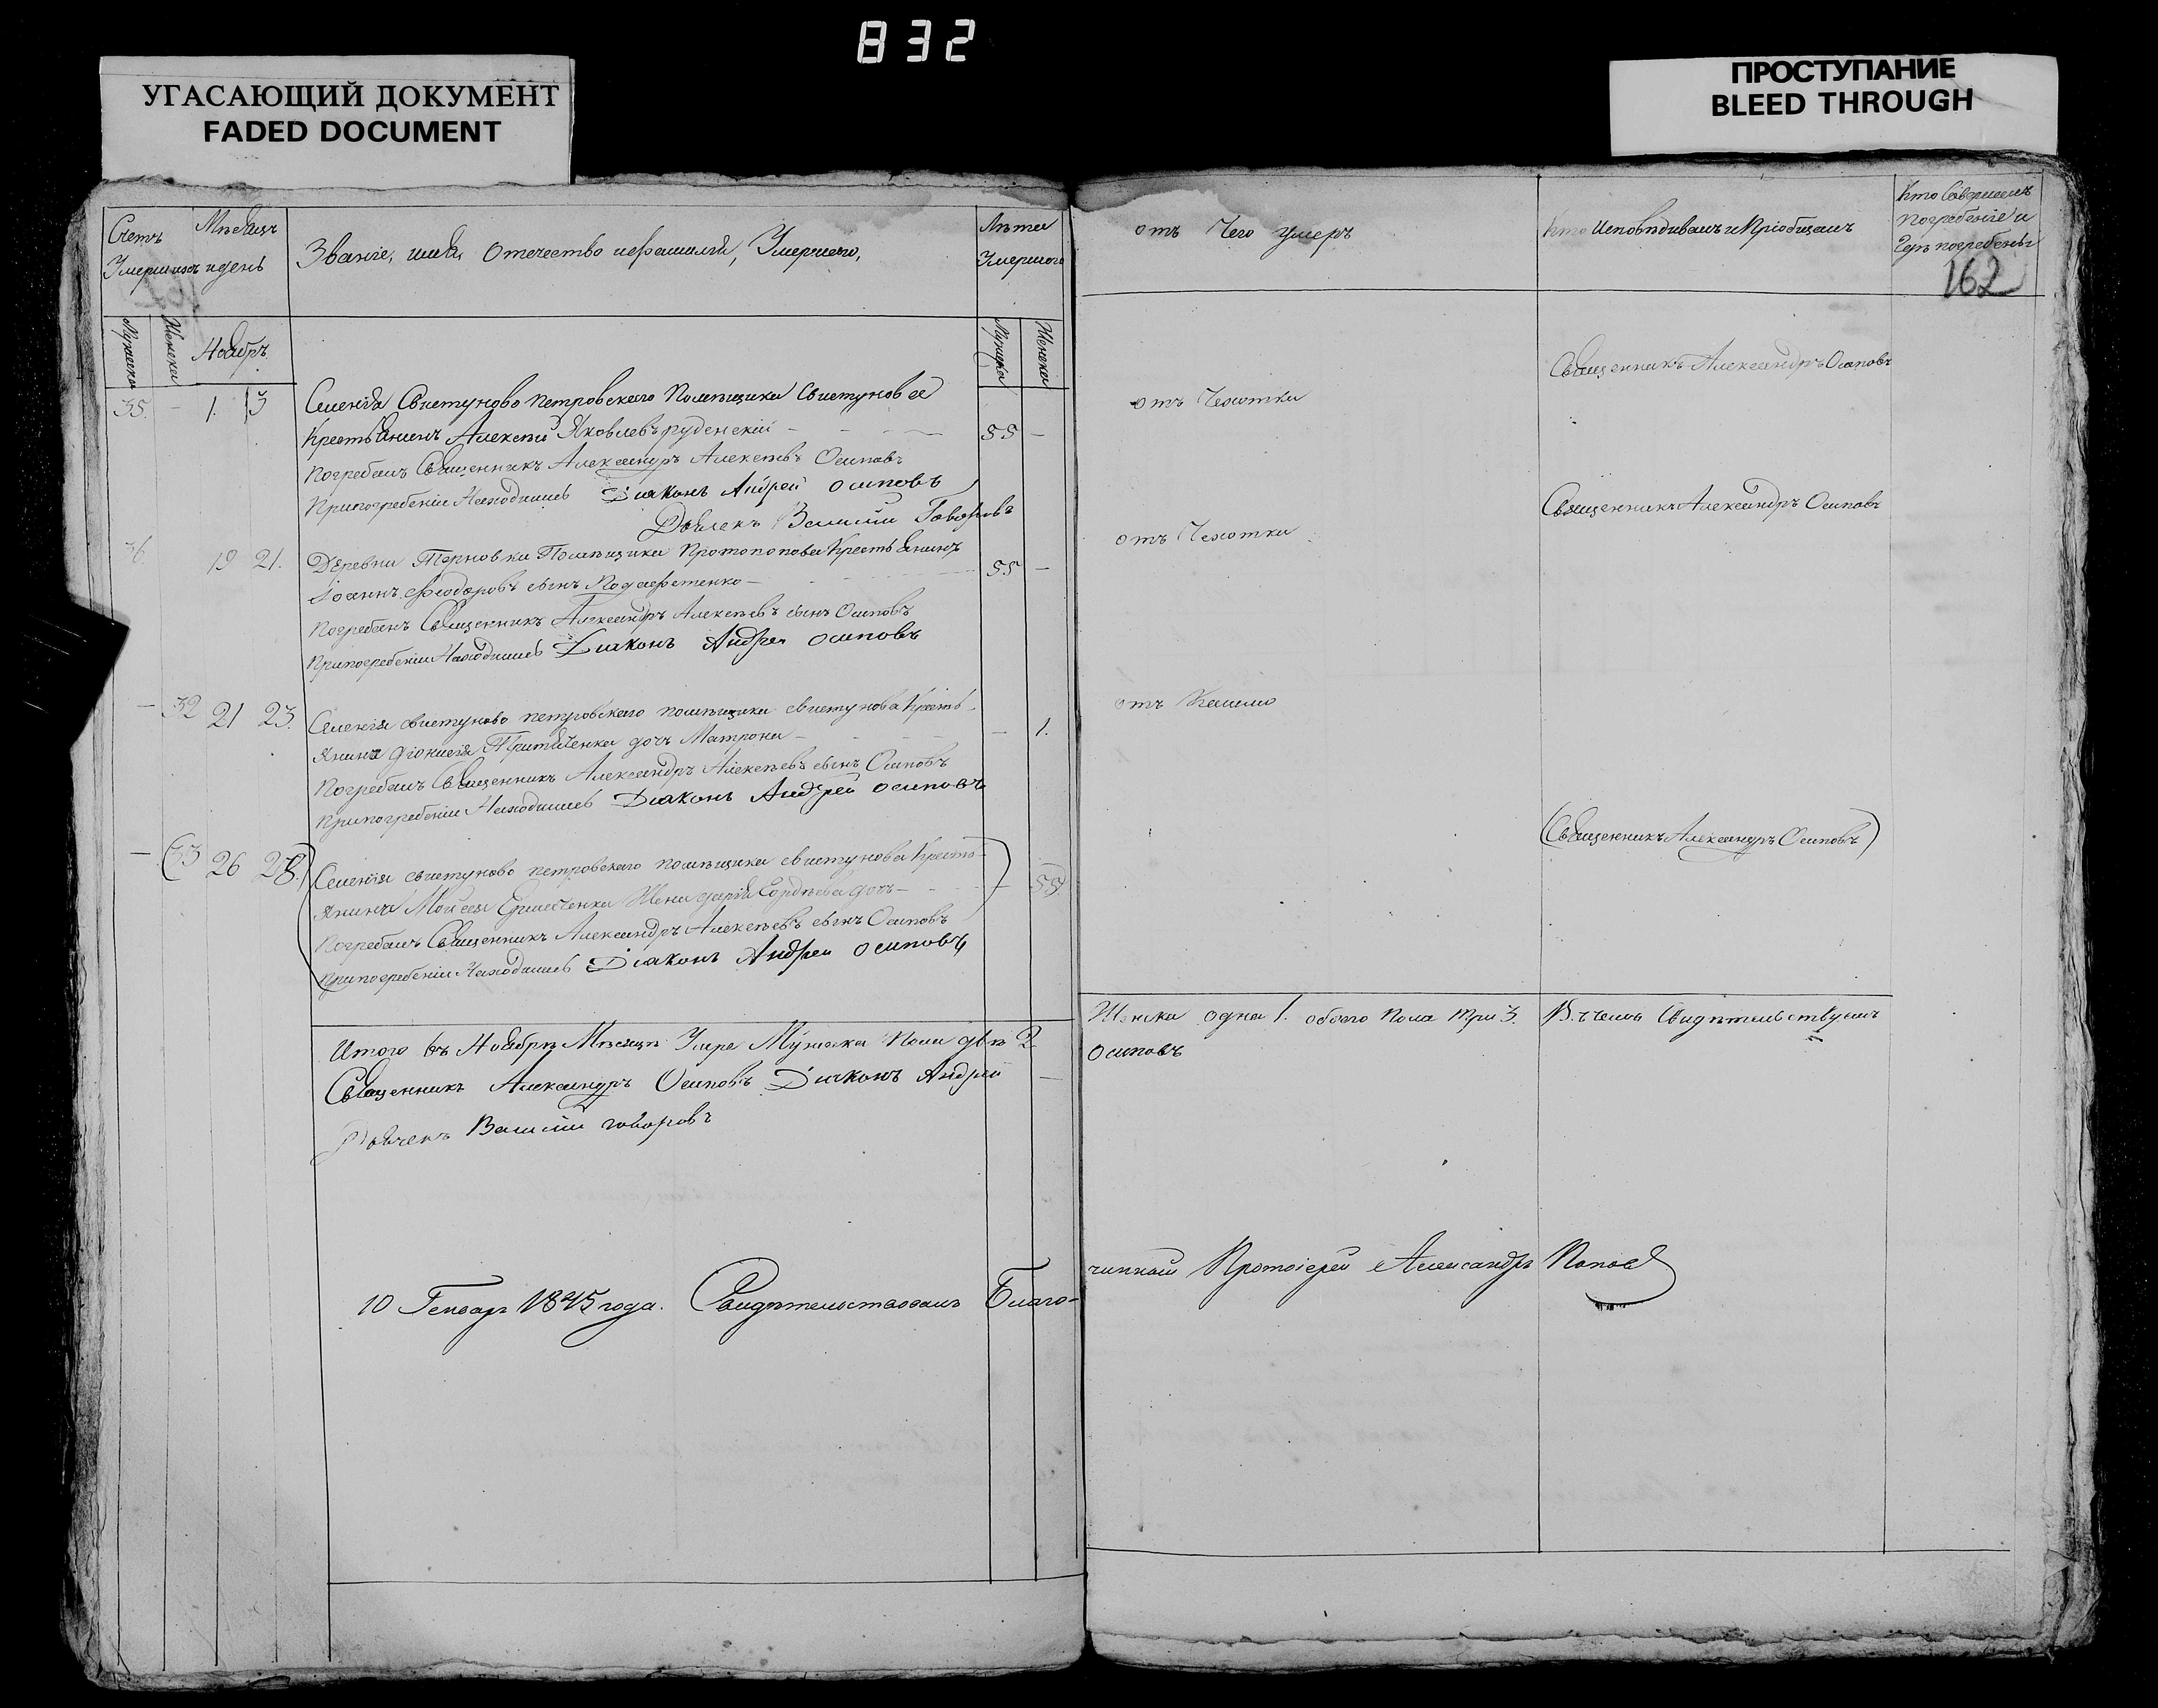 832
УГАСАЮЩИЙ ДОКУМЕНТ
FADED DOCUMENT
ПРОСТУПАНИЕ
BLEED THROUGH
Счетъ Умершихъ
Мѣсяцъ и день
Званіе, имя, Отечество и фамилія, Умершего,
Лѣта Умершого
Мужска
Женска
Ноябрь
Мужска
Женска
35. - 1. 3
Селенія Свистуново петровскаго Помѣщика Свистунова
Крестьянинъ Алексѣй Яковлевъ руденскій - 55 -
Погребалъ Священникъ Александръ Алексѣевъ Осиповъ
При погребеніи Находились Діаконъ Андрей Осиповъ
Дьячекъ Василій Говоровъ
36. 19 21.
Деревни Терновки Помѣщика Протопопова Крестьянинъ
Іоаннъ Феодоровъ сынъ - 55 -
Погребалъ Священникъ Александръ Алексѣевъ сынъ Осиповъ
При погребеніи Находились Діаконъ Андрей Осиповъ
- 32 21 23.
Селенія свистуново петровскаго помѣщика свистунова Кресть-
янина Діонисія дочъ Матрона - - 1.
Погребалъ Священникъ Александръ Алексѣевъ сынъ Осиповъ
При погребеніи Находились Діаконъ Андрей Осиповъ
- (33 26 28.)
Селенія свистуново петровскаго помѣщика свистунова Кресть-
янина Моисея Жена дочъ - - 55
Погребалъ Священникъ Александръ Алексѣевъ сынъ Осиповъ
При погребеніи Находились Діаконъ Андрей Осиповъ
Итого въ Ноябрѣ Мѣсяцѣ Умре Мужска Пола два 2
Священникъ Александръ Осиповъ Діаконъ Андрей
Дьячекъ Василій говоровъ
10 Генваря 1845 года. Свидѣтельствовалъ Благо-
отъ Чего умеръ
Кто Исповѣдивалъ и Пріобщалъ
Кто Совершалъ
погребеніе и
Гдѣ погребены
162
отъ Чахотки
Священникъ Александръ Осиповъ
отъ Чахотки
Священникъ Александръ Осиповъ
отъ Кашлю
(Священникъ Александръ Осиповъ)
Женска одна 1. обоего Пола три 3. В чемъ Свидѣтельствуемъ
Осиповъ
чинный Протоіерей Александръ Поповъ